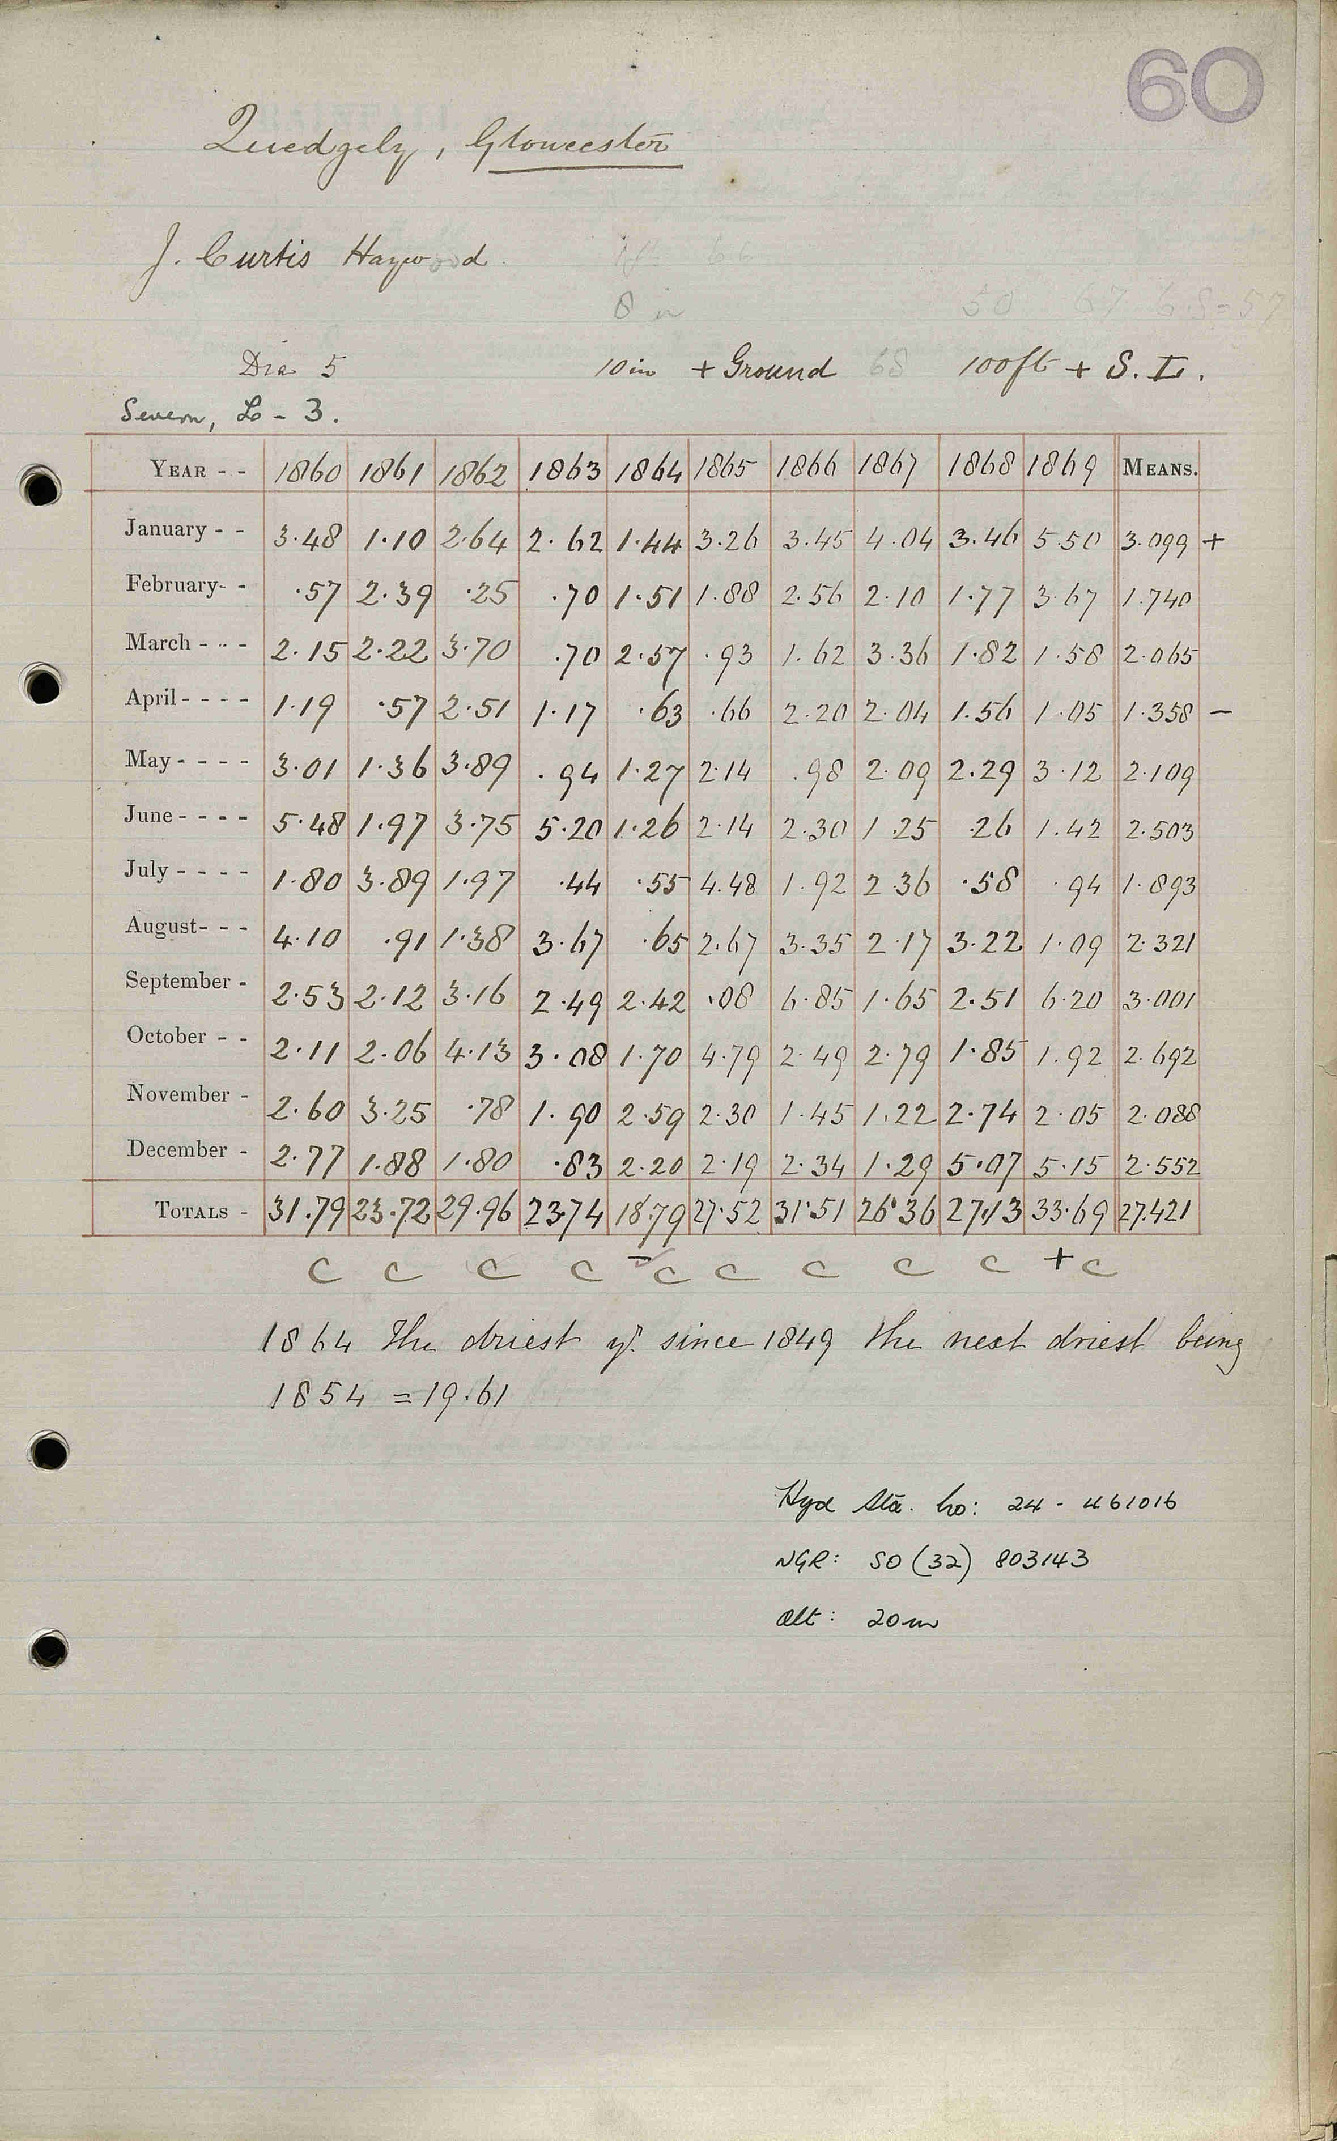 60
Quedgely, Gloucester
J. Curtis Haywood
8 in
50 67 68=57
Dia 5 10 in + Ground 68 100 ft + S. L.
Severn, L - 3.
YEAR - - 1860 1861 1862 1863 1864 1865 1866 1867 1868 1869 MEANS.
January - - 3.48 1.10 2.64 2.62 1.44 3.26 3.45 4.04 3.46 5.50 3.099 +
February- - .57 2.39 .25 .70 1.51 1.88 2.56 2.10 1.77 3.67 1.740
March - - - 2.15 2.22 3.70 .70 2.57 .93 1.62 3.36 1.82 1.58 2.065
April - - - - 1.19 .57 2.51 1.17 .63 .66 2.20 2.04 1.56 1.05 1.358 -
May - - - - 3.01 1.36 3.89 .94 1.27 2.14 .98 2.09 2.29 3.12 2.109
June - - - - 5.48 1.97 3.75 5.20 1.26 2.14 2.30 1.25 .26 1.42 2.503
July - - - - 1.80 3.89 1.97 .44 .55 4.48 1.92 2.36 .58 .94 1.893
August- - - 4.10 .91 1.38 3.67 .65 2.67 3.35 2.17 3.22 1.09 2.321
September - 2.53 2.12 3.16 2.49 2.42 .08 6.85 1.65 2.51 6.20 3.001
October - - 2.11 2.06 4.13 3.08 1.70 4.79 2.49 2.79 1.85 1.92 2.692
November - 2.60 3.25 .78 1.90 2.59 2.30 1.45 1.22 2.74 2.05 2.088
December - 2.77 1.88 1.80 .83 2.20 2.19 2.34 1.29 5.07 5.15 2.552
TOTALS - 31.79 23.72 29.96 23.74 18.79 27.52 31.51 26.36 27.13 33.69 27.421
C C C C - C C C C C + C
1864 the driest yr. since 1849 the next driest being
1854 = 19.61
Hyd Sta. No: 24 - 461016
NGR: SO (32) 803143
Alt: 20m